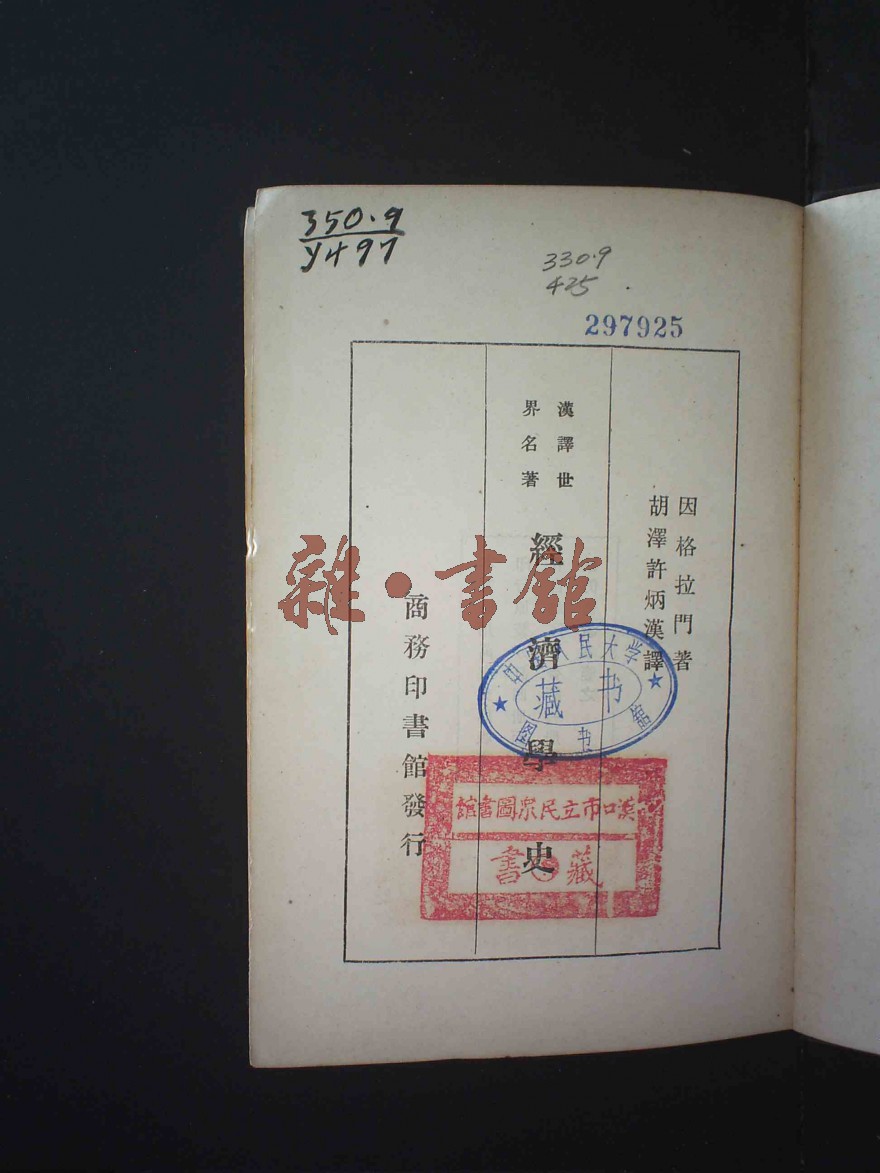 350.9
Y497
330.9
425
297925
因格拉門著
胡澤許炳漢譯
漢譯世
界名著
經濟學史
商務印書館發行
雜·書館
中國人民大学
图书館
藏书
漢口市立民眾圖書館
藏書